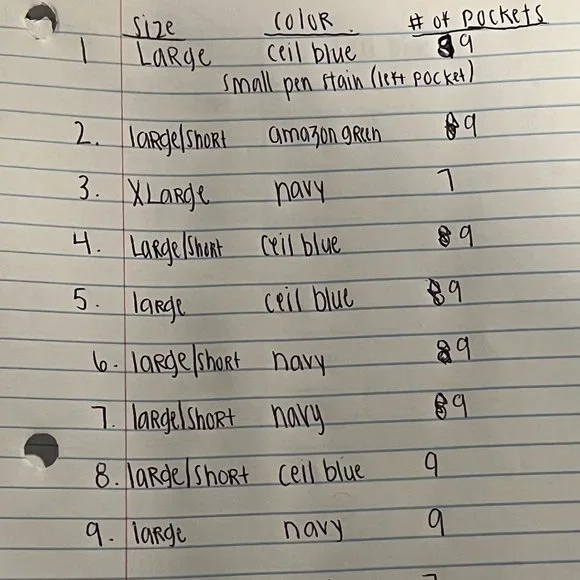 Size color # of pockets
1 Large ceil blue 9
small pen stain (left pocket)
2. large/short amazon green 9
3. XLarge navy 7
4. Large/short ceil blue 9
5. large ceil blue 9
6. large/short navy 9
7. large/short navy 9
8. large/short ceil blue 9
9. large navy 9